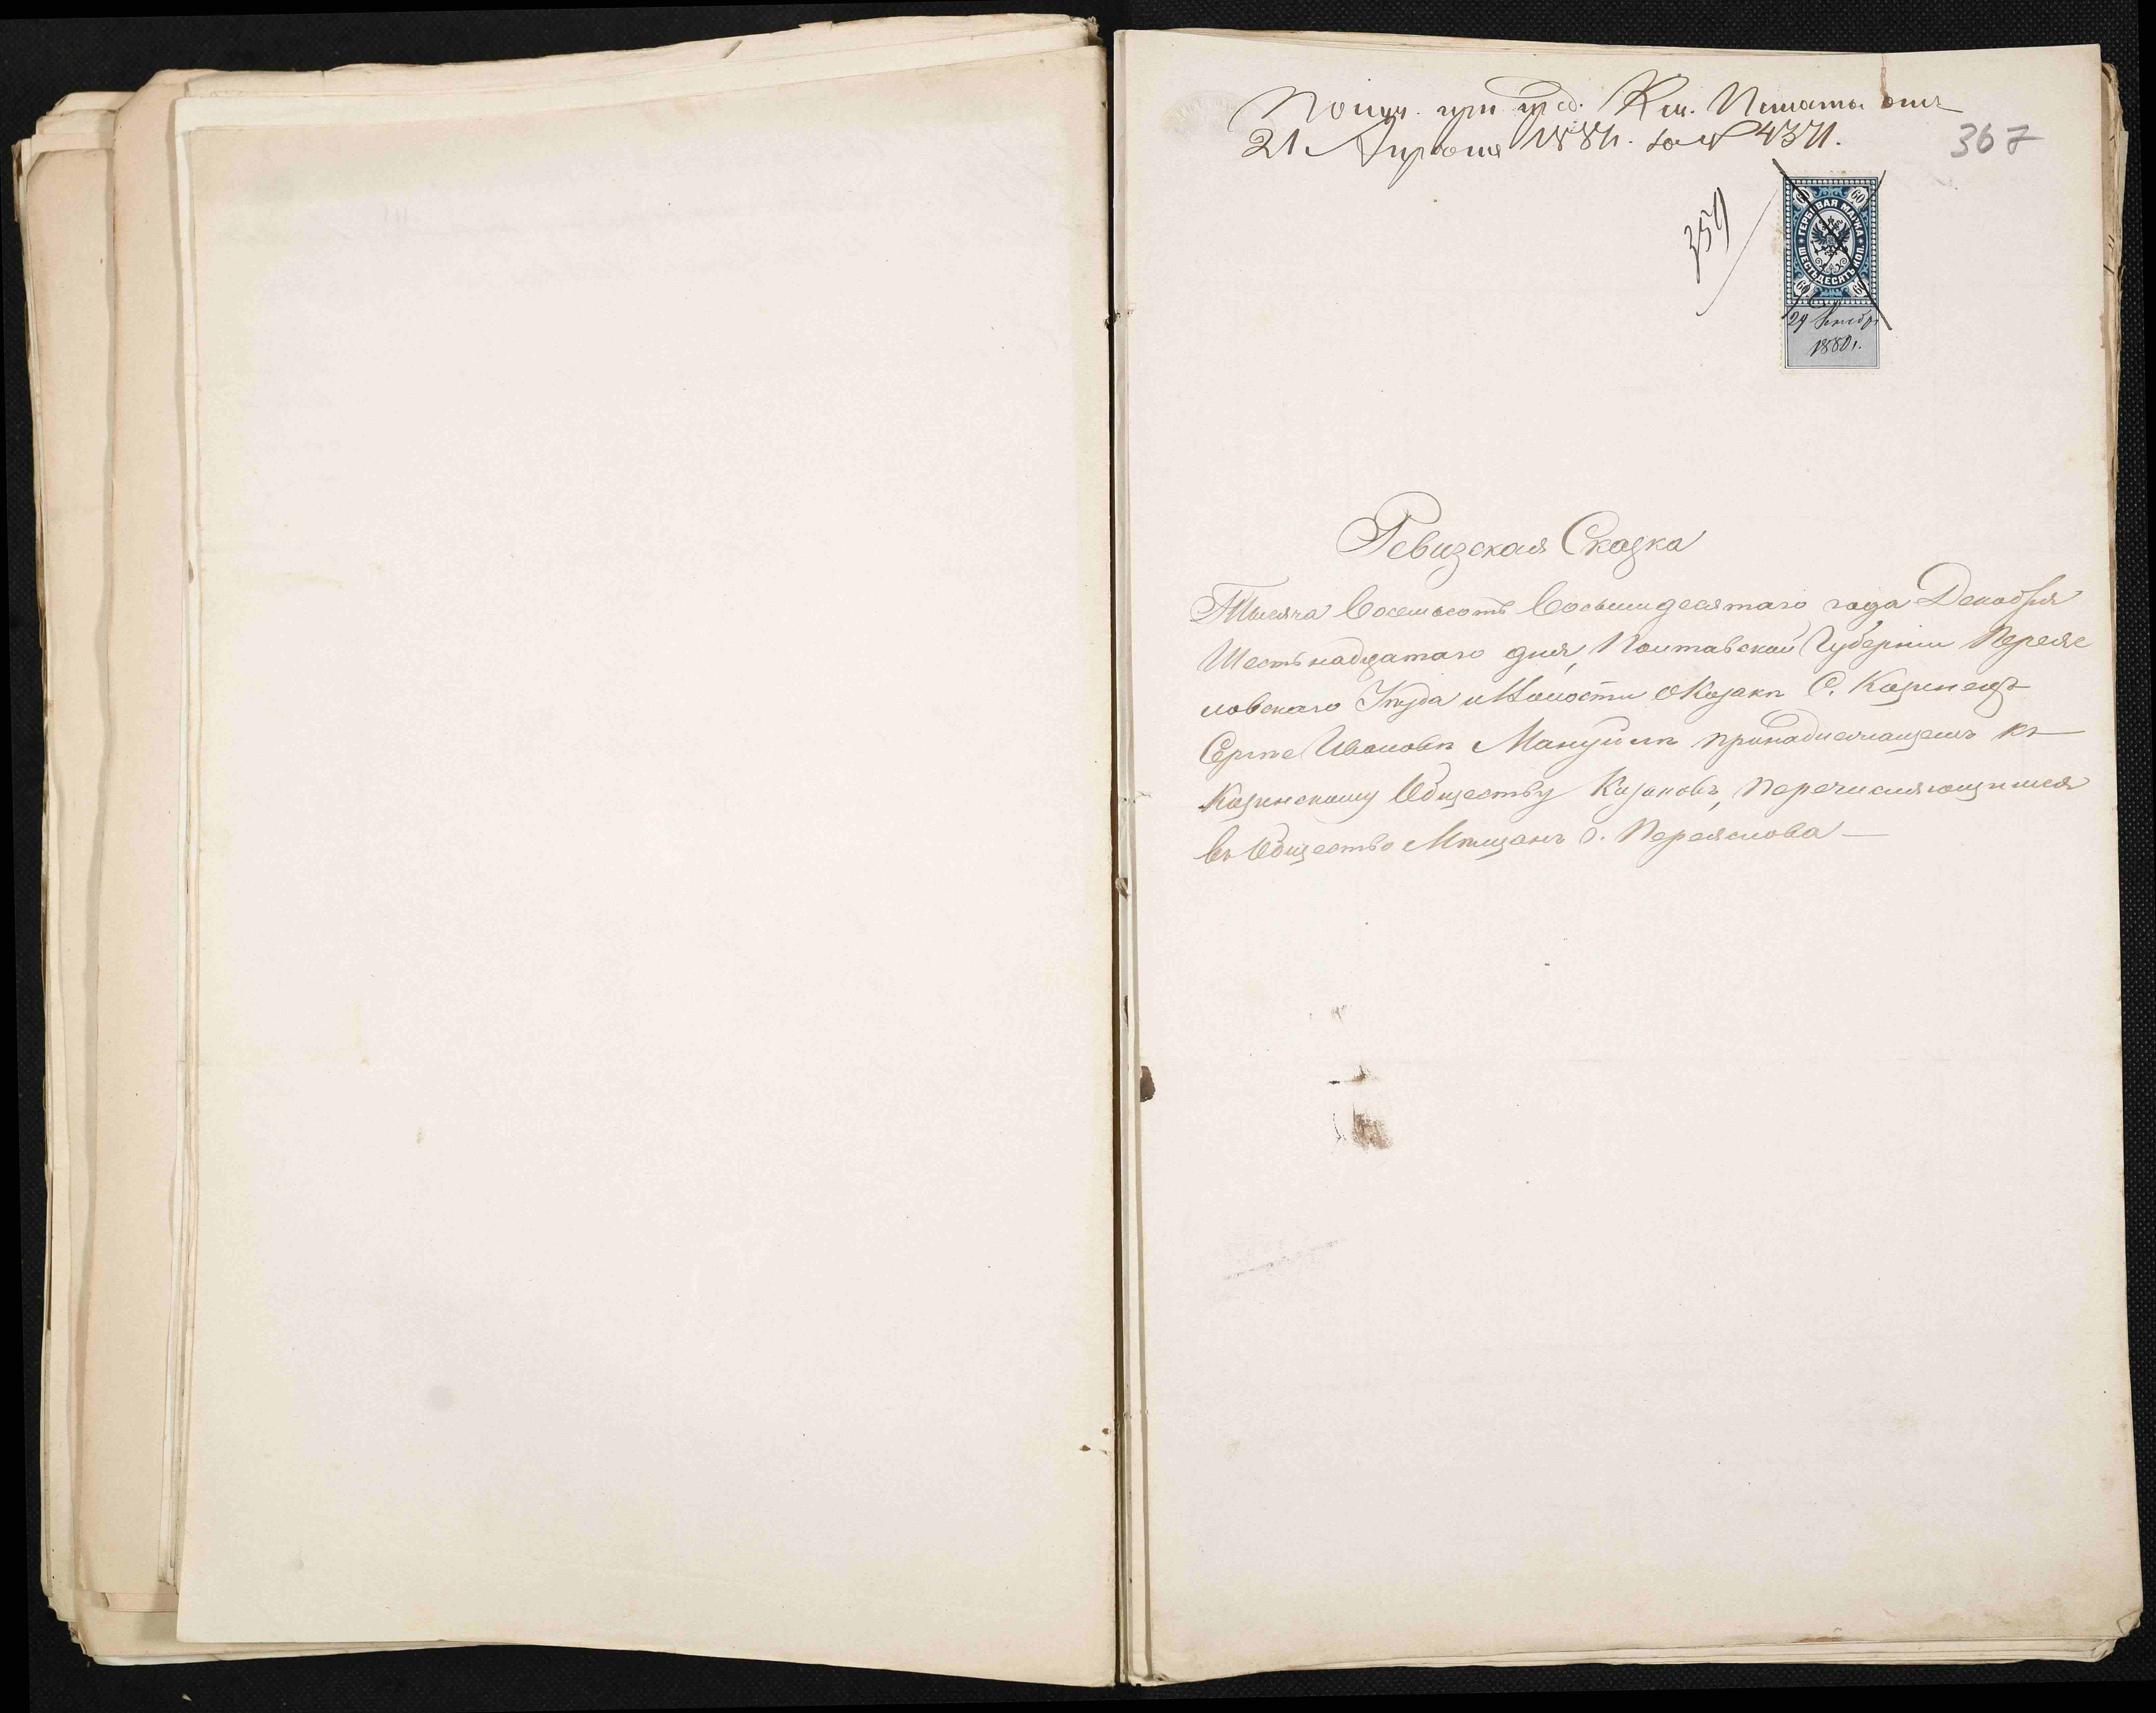 Получ. при пред. Каз. Палаты отъ
21 Апрѣля 1881 г. за № 4371.
367
359
60 60
ГЕРБОВАЯ МАРКА
ШЕСТЬДЕСЯТЪ КОП.
60 60
29
1880 г.
Ревизская Сказка
Тысяча Восемьсотъ Восьмидесятаго года Декабря
Шестьнадцатаго дня, Полтавской Губерніи Переяс
ловскаго Уѣзда и Волости о Козакѣ С. Козинецъ
Сергѣе Ивановѣ Мануйлѣ принадлежащемъ къ
Козинскому Обществу Козаковъ, перечисляющимся
въ Общество Мѣщанъ г. Переяслова —